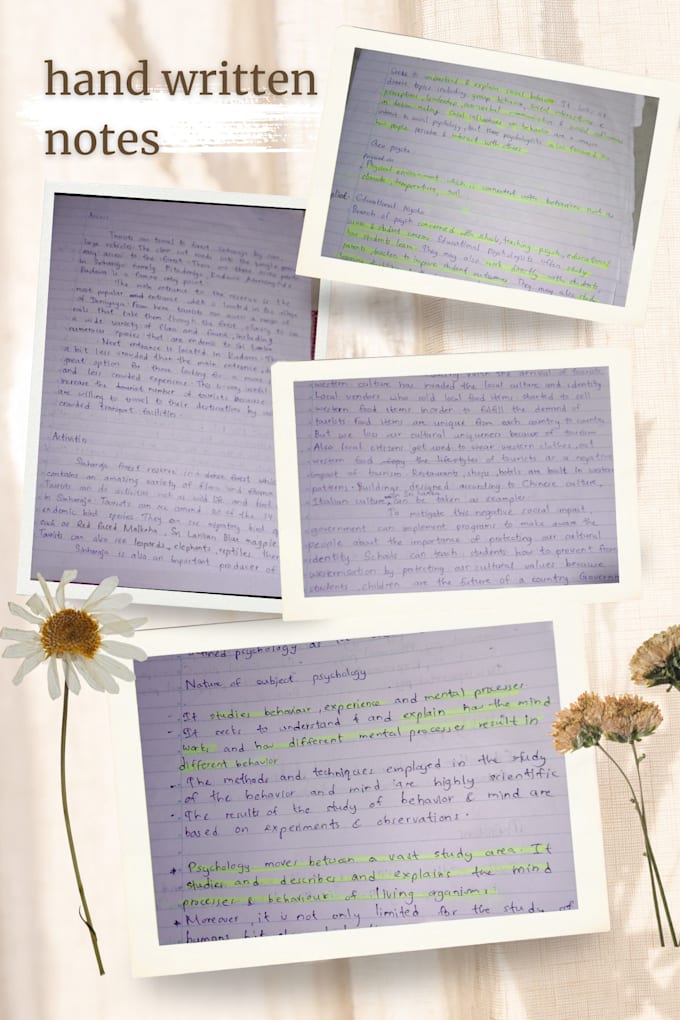 hand written
notes
Seeks to understand & explain social behavior. It looks at
diverse topics including group behavior, social interactions &
perceptions, leadership, non-verbal communication & social influences
on decision making. Social influences on behavior are a major
interest in social psychology, but these psychologists also focused on
how people perceive & interact with others.
psycho
Physical environment which is connected with behaviour such as
climate, temperature, soil.
Educational psycho
Branch of psych concerned with schools, teaching psych, educational
issues & student concerns. Educational psychologists often study
how students learn. They may also work directly with students,
parents, teachers to improve student outcomes. They may also study
Access
Tourists can travel to forest Sinharaja by
large vehicles. The
easy access to the forest. There are three entry points
in Sinharaja namely Pitadeniya, Kudawa,
Kudawa is a main entry point.
The main entrance to the reserve is the
most popular entrance which is located in the village
of From here tourists can access a range of
trails that take them through the forest, allowing to
a wide variety of flora and fauna, including
numerous species that are endemic to Sri Lanka
Next entrance is located in Kudawa. This
a bit less crowded than the main entrance,
great option for those looking for a more
and less crowded experience. This is very useful
increase the tourist number of tourists because
are willing to travel to their destinations by
crowded transport facilities.
Activities
Sinharaja forest reserve is a dense forest which
contains an amazing variety of flora and
Tourists can do activities such as wild life and bird
in Sinharaja. Tourists can see around 20 of the
endemic bird species. They can see migrating bird
such as Red faced Malkoha, Sri Lankan Blue magpie
Tourists can also see leopards, elephants, reptiles, there
Sinharaja is also an important producer of
raise the arrival of tourists
western culture has invaded the local culture and identity.
Local vendors who sold local food items started to sell
western food items inorder to fulfill the demand of
tourists food items are unique from each country to country
But we loss our cultural uniqueness because of tourism
Also local citizens get used to wear western clothes, eat
western food copy the lifestyles of tourists as a negative
impact of tourism. Restaurants, shops, hotels are built in western
patterns. Buildings designed according to Chinese culture,
Italian culture in Sri Lanka can be taken as examples.
To mitigate this negative social impact
government can implement programs to make aware the
people about the importance of protecting our cultural
identity. Schools can teach students how to prevent from
westernisation by protecting our cultural values because
students, children are the future of a country. Governm
defined psychology as the
Nature of subject psychology
- It studies behaviour, experience and mental processes.
- It seeks to understand & and explain how the mind
works and how different mental processes result in
different behavior
- The methods and techniques employed in the study
of the behavior and mind are highly scientific
- The results of the study of behavior & mind are
based on experiments & observations.
* Psychology moves between a vast study area. It
studies and describes and explains the mind
processes & behaviour of living oganism.
* Moreover, it is not only limited for the study of
humans but